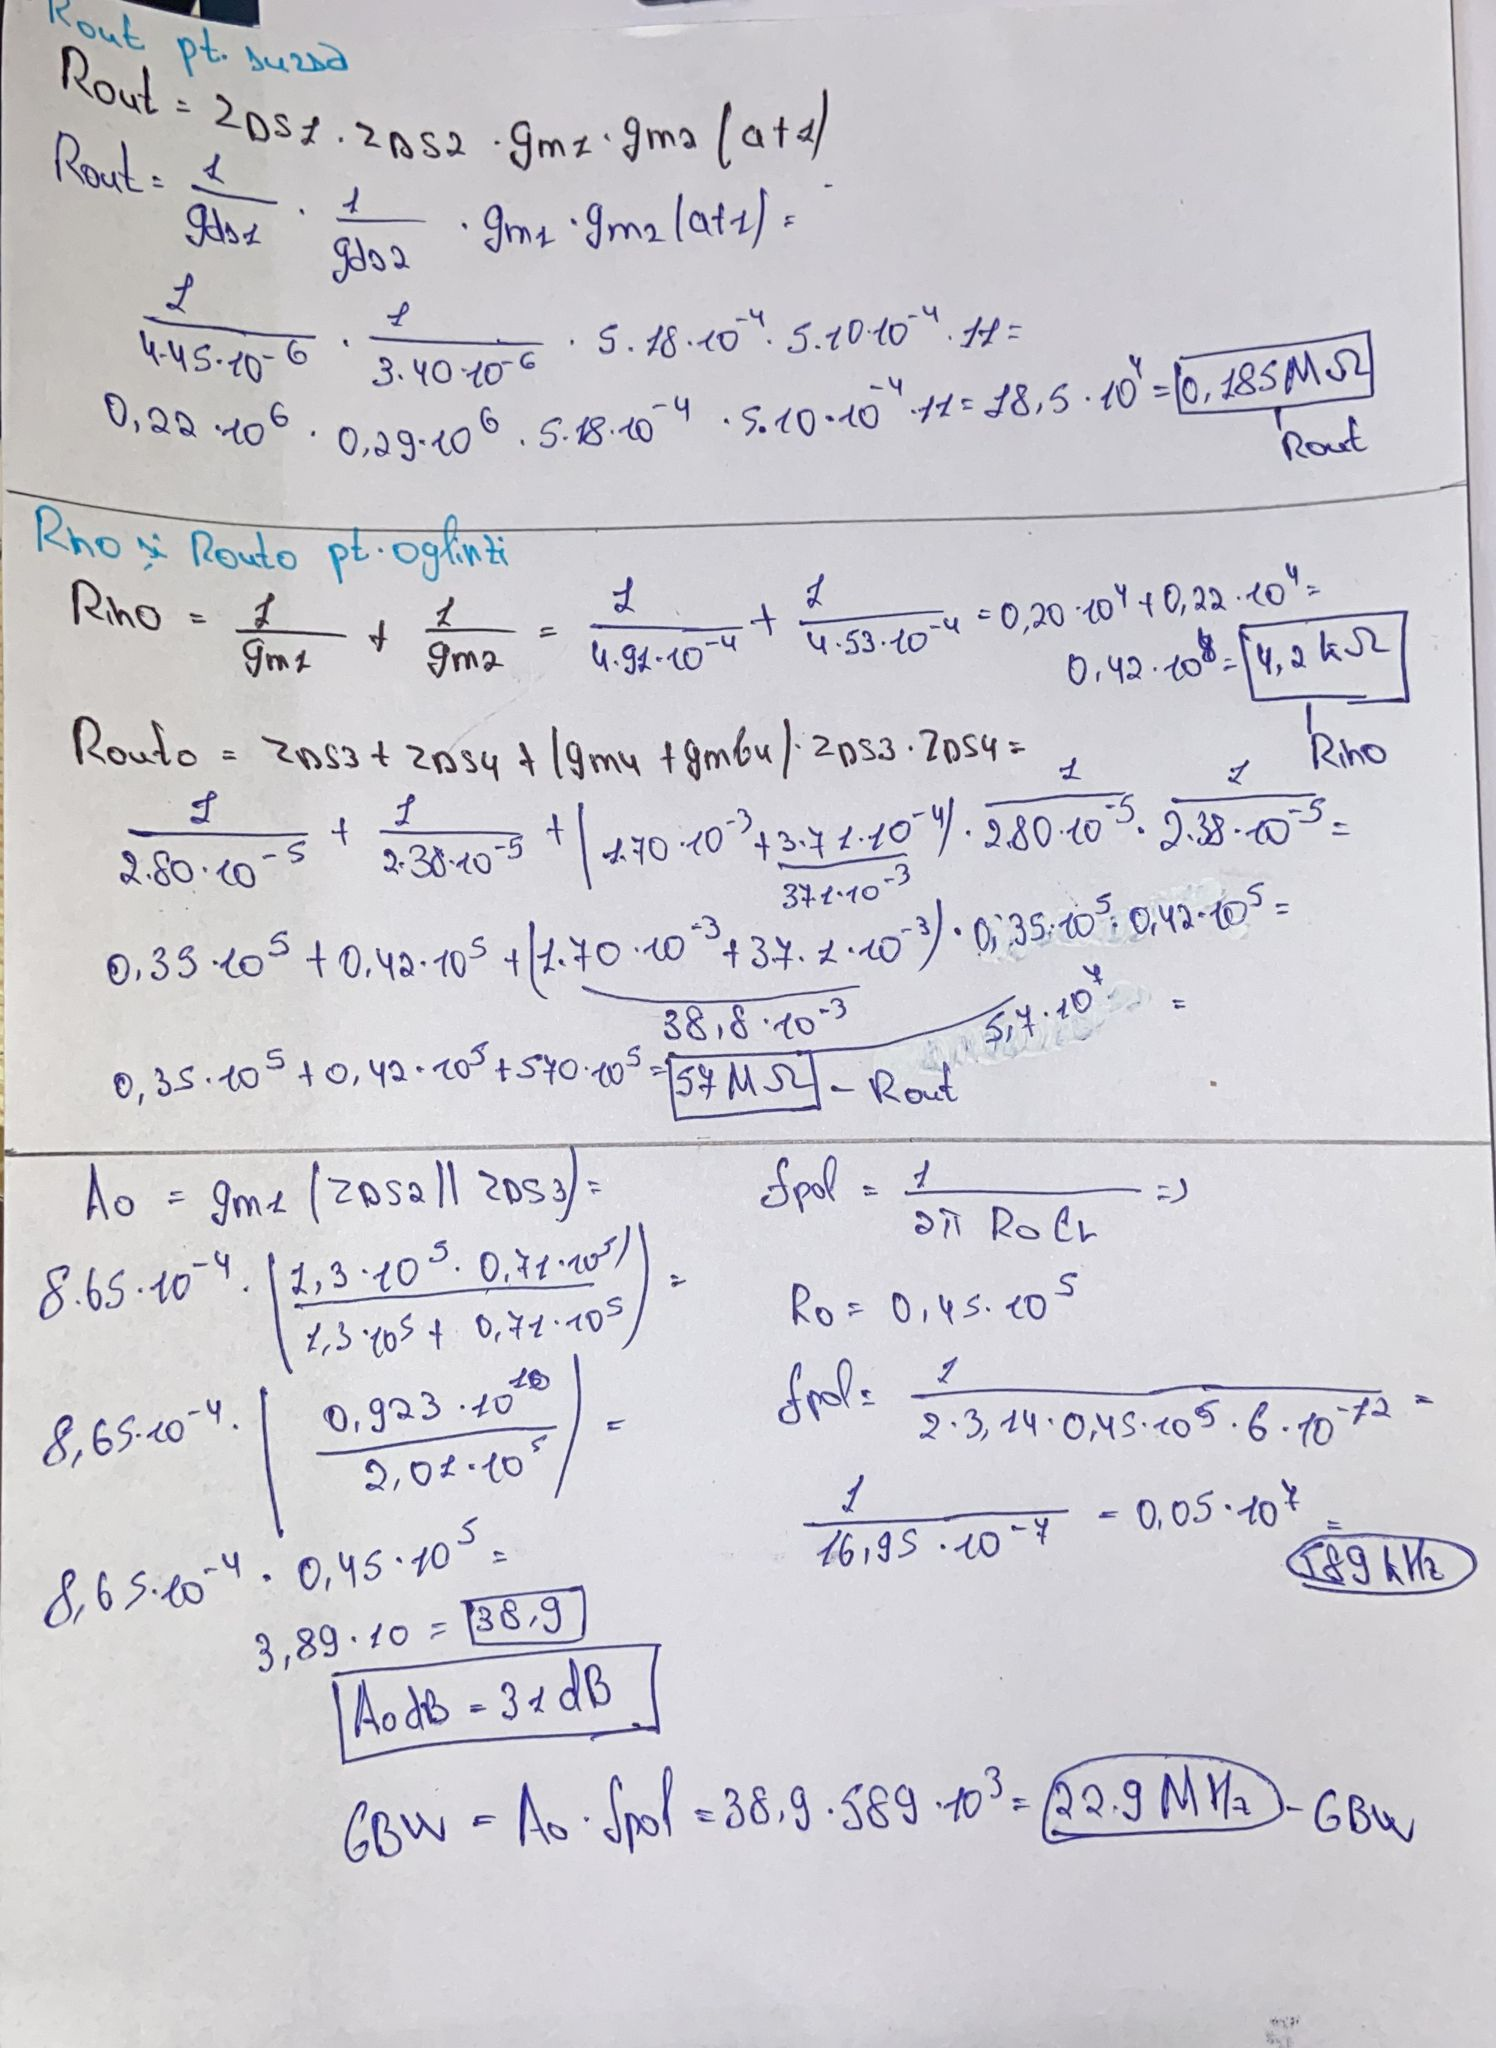 Rout pt. sursă
Rout = rDS1 · rDS2 · gm1 · gm2 (a+1)
Rout = 1/gds1 · 1/gds2 · gm1 · gm2 (a+1) =
1/4.45·10^-6 · 1/3.40·10^-6 · 5.18·10^-4 · 5.10·10^-4 · 11 =
0,22·10^6 · 0,29·10^6 · 5.18·10^-4 · 5.10·10^-4 · 11 = 18,5·10^4 = 0,185 MΩ
Rout
Rino și Routo pt. oglinzi
Rino = 1/gm1 + 1/gm2 = 1/4.91·10^-4 + 1/4.53·10^-4 = 0,20·10^4 + 0,22·10^4 =
0,42·10^4 = 4,2 kΩ
Rino
Routo = rDS3 + rDS4 + (gm4 + gmb4) · rDS3 · rDS4 =
1/2.80·10^-5 + 1/2.38·10^-5 + (1.70·10^-3 + 3.71·10^-4) · 1/2.80·10^-5 · 1/2.38·10^-5 =
37.1·10^-3
0,35·10^5 + 0,42·10^5 + (1.70·10^-3 + 37.1·10^-3) · 0,35·10^5 · 0,42·10^5 =
38,8·10^-3 5,7·10^7 =
0,35·10^5 + 0,42·10^5 + 570·10^5 = 57 MΩ - Rout
A0 = gm1 (rDS2 || rDS3) =
8.65·10^-4 · (1,3·10^5 · 0,71·10^5 / 1,3·10^5 + 0,71·10^5) =
8,65·10^-4 · (0,923·10^10 / 2,01·10^5) =
8,65·10^-4 · 0,45·10^5 =
3,89·10 = 38,9
A0dB = 31 dB
fpol = 1/2π R0 CL =>
R0 = 0,45·10^5
fpol = 1/2·3,14·0,45·10^5·6·10^-12 =
1/16,95·10^-7 = 0,05·10^7 =
589 kHz
GBW = A0 · fpol = 38,9 · 589·10^3 = 22.9 MHz - GBW